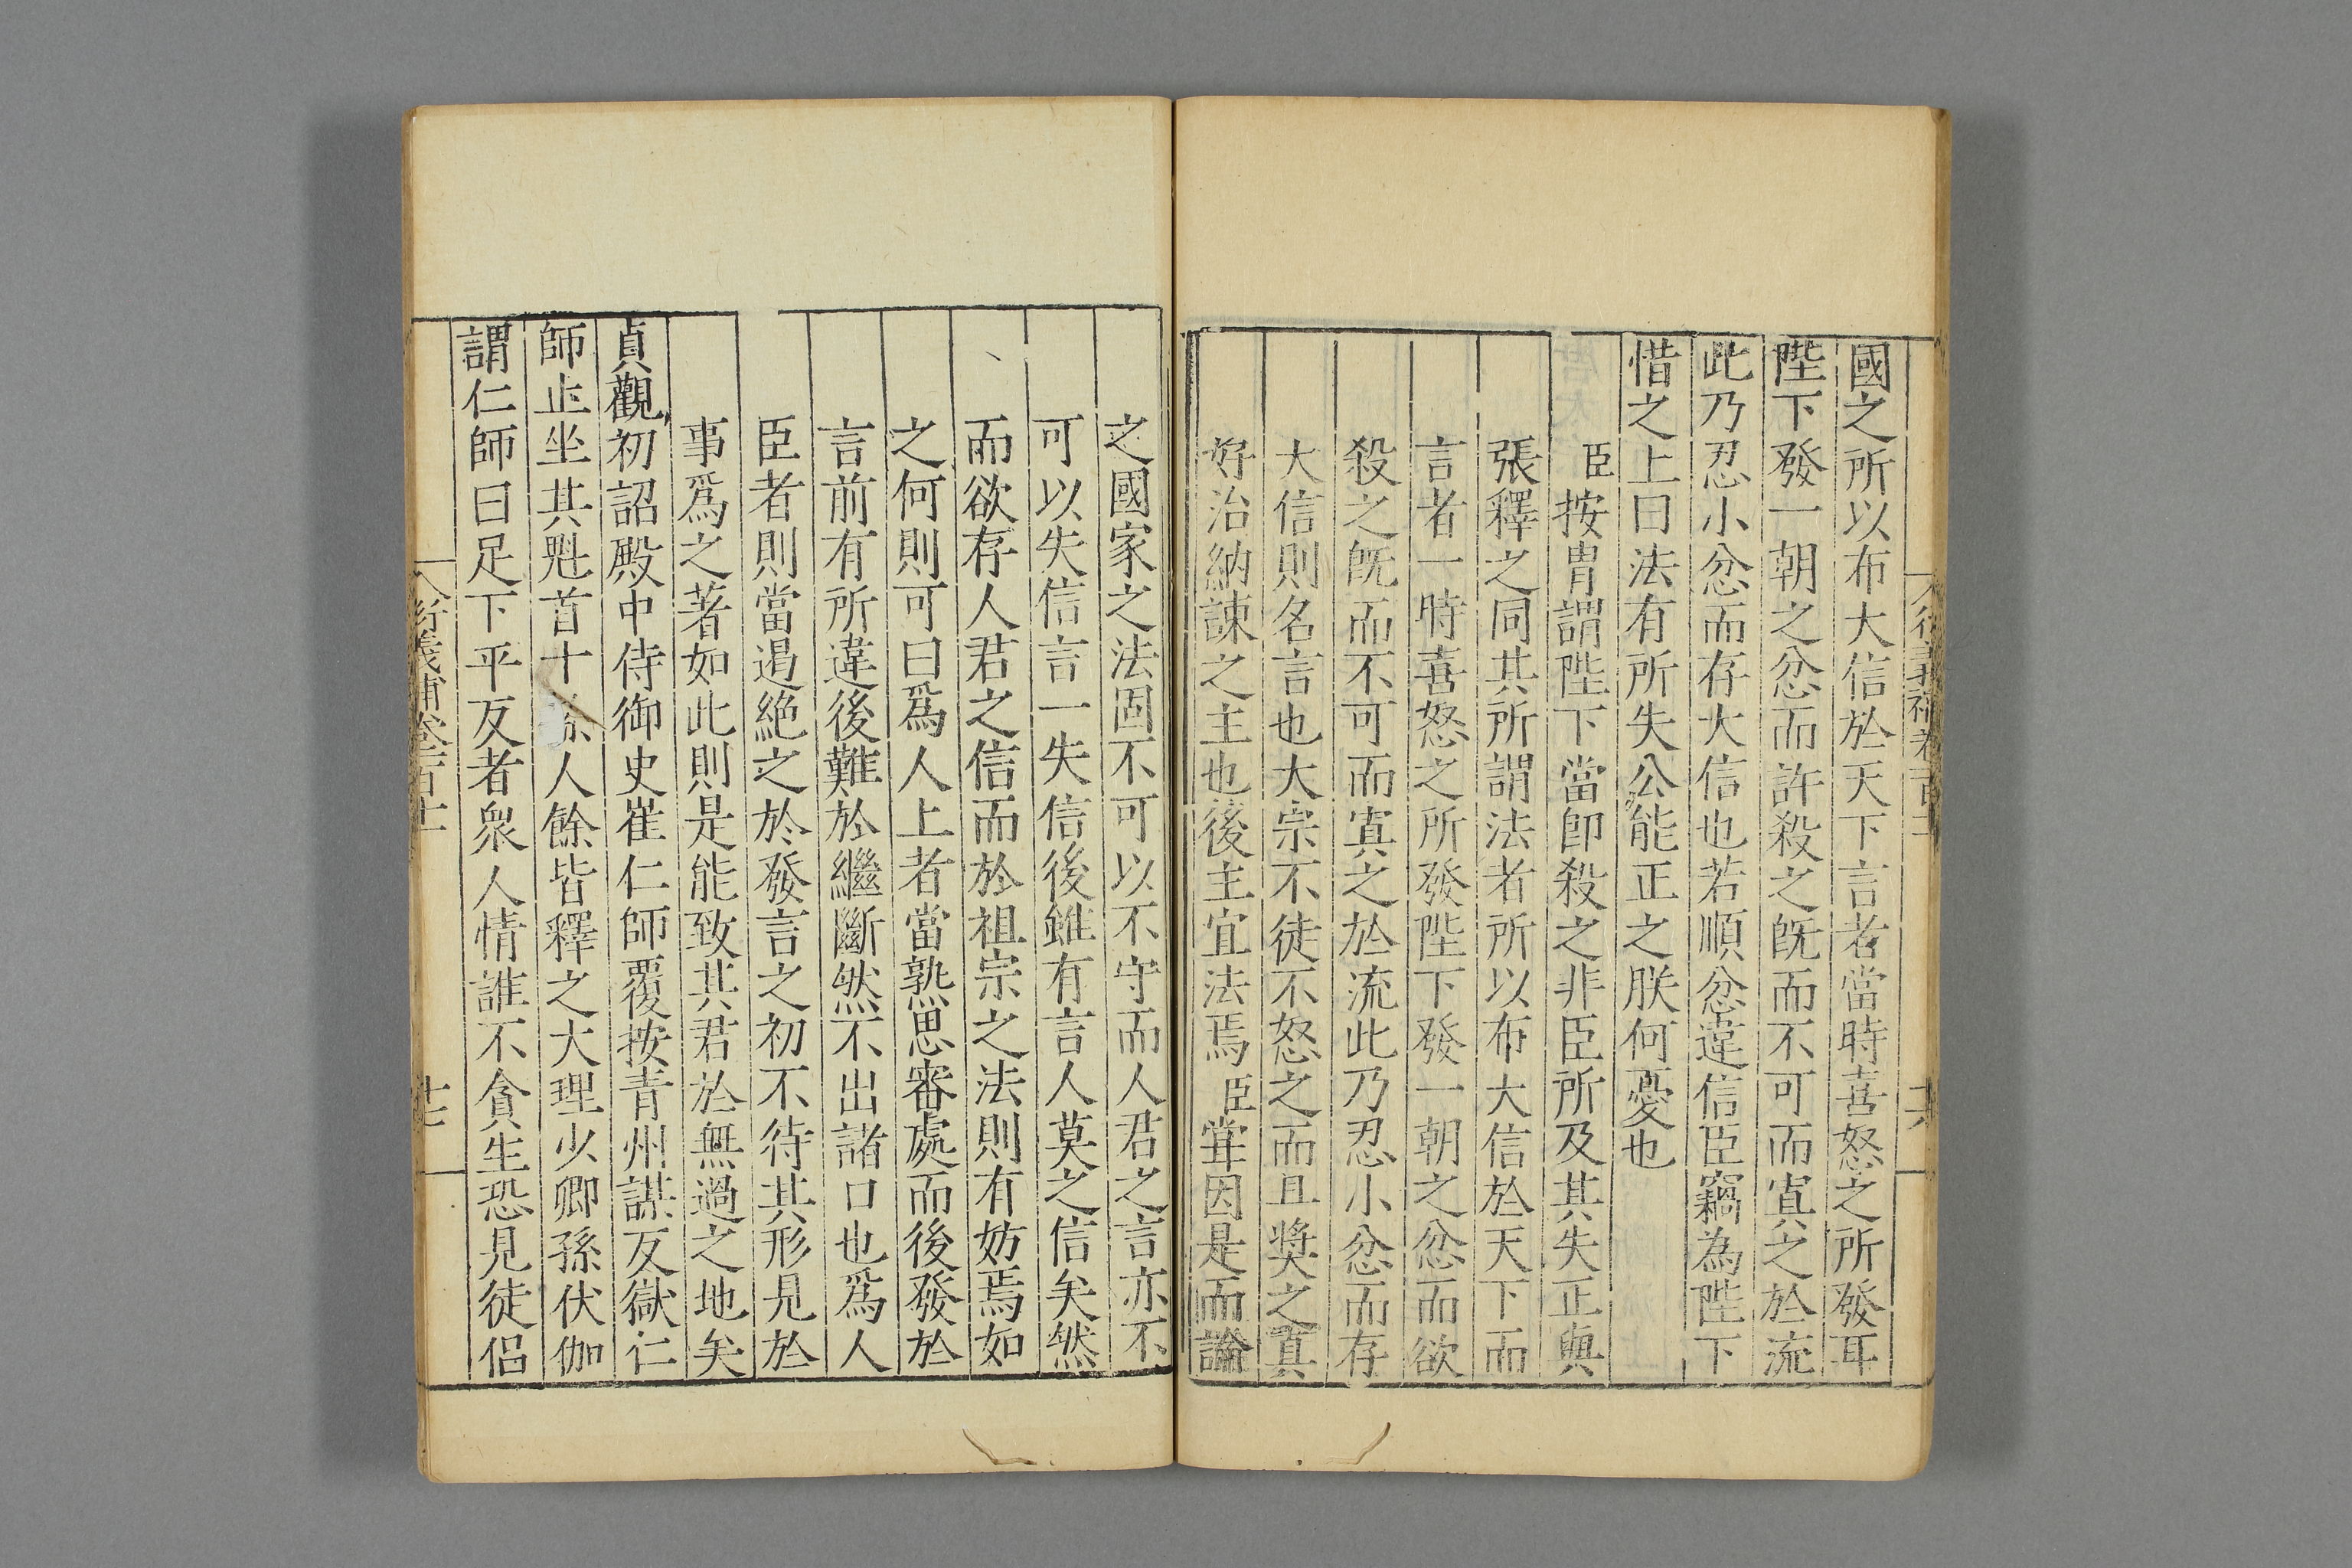 國之所以布大信於天下言者當時喜怒之所發耳
陛下發一朝之忿而許殺之旣而不可而寘之於流
此乃忍小忿而存大信也若順忿違信臣竊為陛下
惜之上曰法有所失公能正之朕何憂也
臣按胄謂陛下當卽殺之非臣所及其失正與
張釋之同其所謂法者所以布大信於天下而
言者一時喜怒之所發陛下發一朝之忿而欲
殺之旣而不可而寘之於流此乃忍小忿而存
大信則名言也太宗不徒不怒之而且奬之真
好治納諫之主也後主宜法焉臣甞因是而論
之國家之法固不可以不守而人君之言亦不
可以失信言一失信後雖有言人莫之信矣然
而欲存人君之信而於祖宗之法則有妨焉如
之何則可曰爲人上者當熟思審處而後發於
言前有所違後難於繼斷然不出諸口也爲人
臣者則當遏絶之於發言之初不待其形見於
事爲之著如此則是能致其君於無過之地矣
貞觀初詔殿中侍御史崔仁師覆按青州謀反獄仁
師止坐其魁首十人餘皆釋之大理少卿孫伏伽
謂仁師曰足下平反者衆人情誰不貪生恐見徒侣
衍義補卷百十
十七